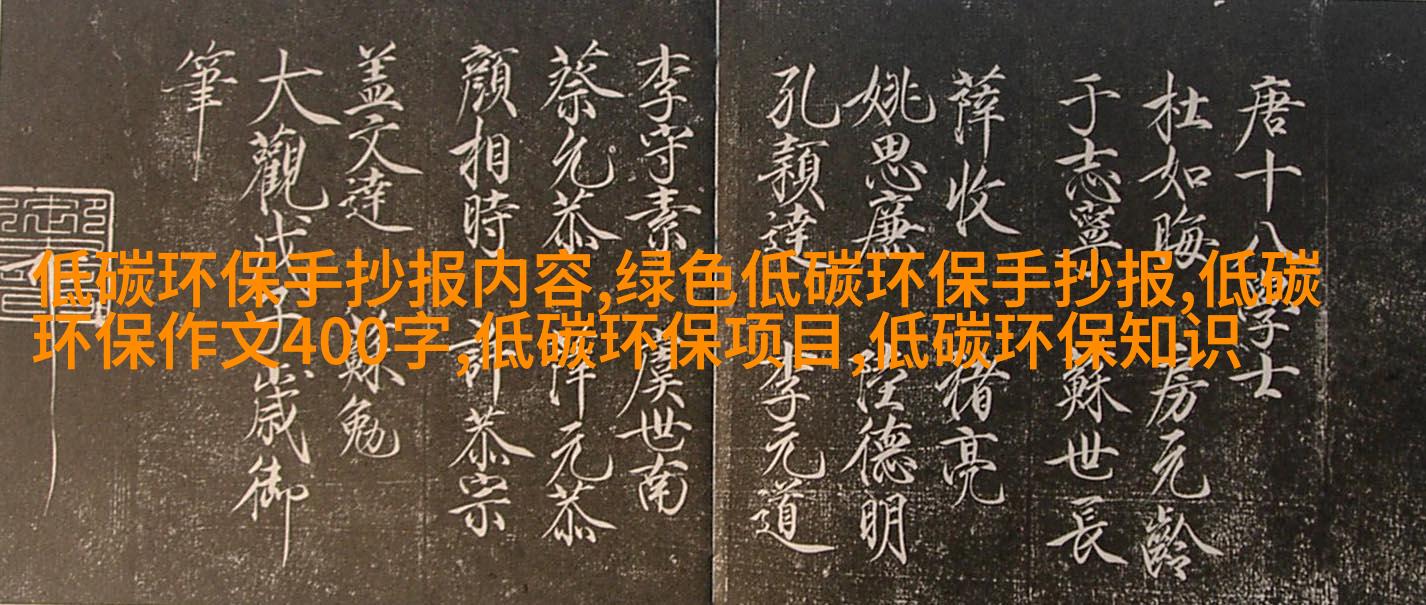 低碳环保手抄报内容,绿色低碳环保手抄报,低碳
环保作文400字,低碳环保项目,低碳环保知识
唐十八學士
杜如晦 房元齡
于志寧 蘇世長
薛收 褚亮
姚思廉 陸德明
孔穎達 李元道
李守素 虞世南
蔡允恭 薛元恭
顏相時 許恭宗
盖文達 蘇勉
大觀戊子歲御
筆